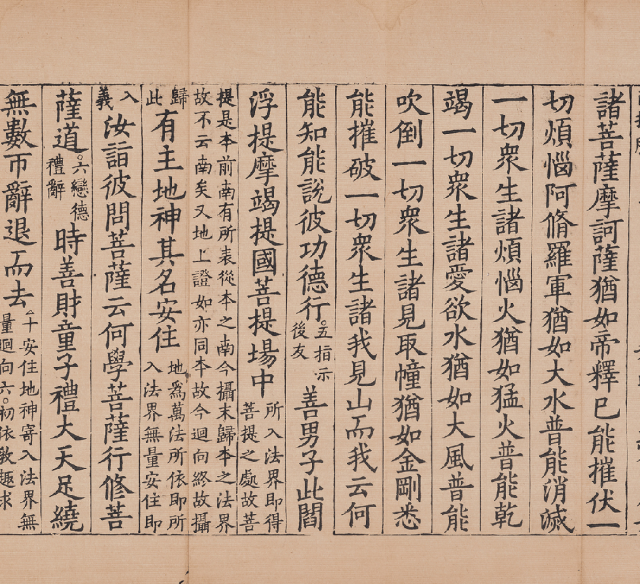 諸菩薩摩訶薩猶如帝釋已能摧伏一
切煩惱阿脩羅軍猶如大水普能消滅
一切衆生諸煩惱火猶如猛火普能乾
竭一切衆生諸愛欲水猶如大風普能
吹倒一切衆生諸見取幢猶如金剛悉
能摧破一切衆生諸我見山而我云何
能知能說彼功德行。五指示後友善男子此閻
浮提摩竭提國菩提場中所入法界即得菩提之處故菩
提是本前南有所表從本之南今攝末歸本之法界
故不云南矣又地上證如亦同本故今迴向終故攝
歸此有主地神其名安住地爲萬法所依即所入法界無量安住即
入義汝詣彼問菩薩云何學菩薩行修菩
薩道。六戀德禮辭時善財童子禮大天足繞
無數帀辭退而去。十安住地神寄入法界無量迴向六。初依教趣求